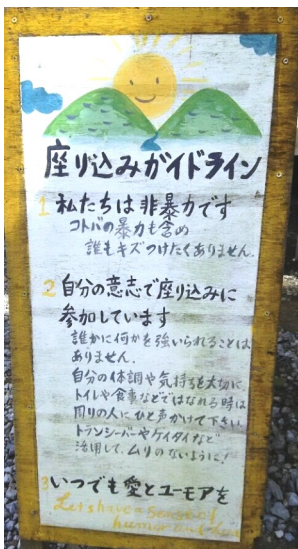 座り込みガイドライン
1 私たちは非暴力です
コトバの暴力も含め
誰もキズつけたくありません。
2 自分の意志で座り込みに
参加しています
誰かに何かを強いられることは
ありません。
自分の体調や気持を大切に、
トイレや食事などではなれる時は
周りの人にひと声かけて下さい。
トランシーバーやケイタイなど
活用して、ムリのないように!
3 いつでも愛とユーモアを
Let's have a sense of
humor and Love